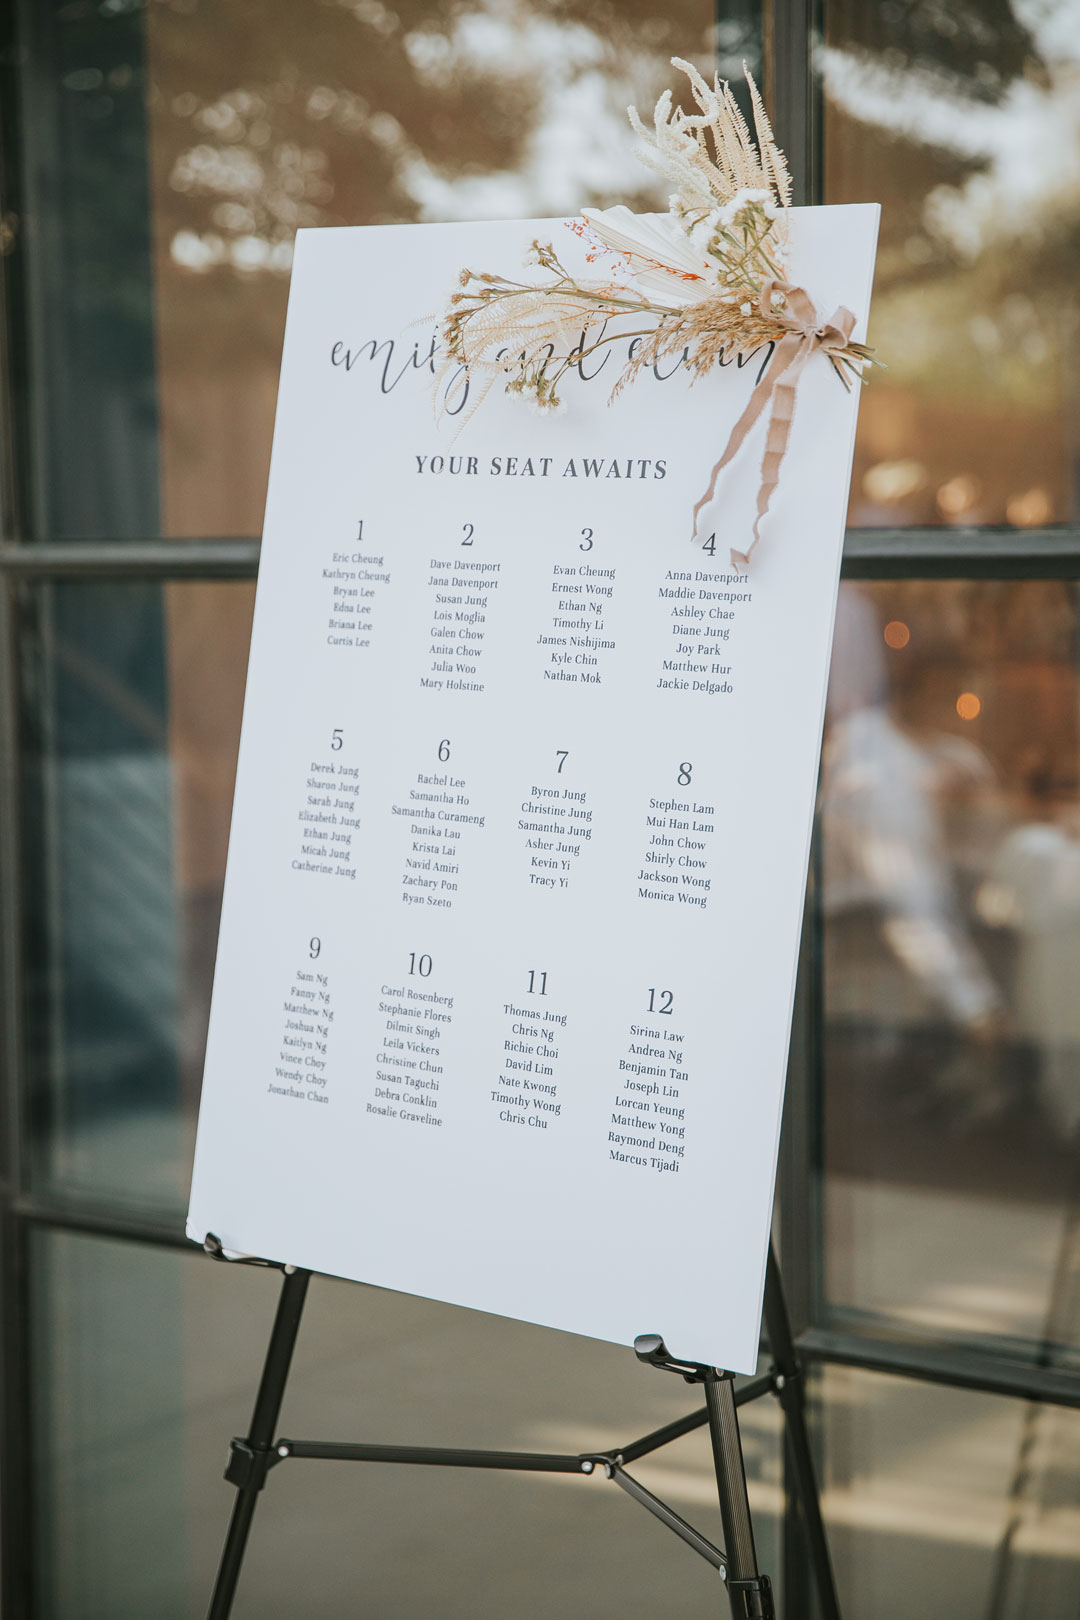 emily and
YOUR SEAT AWAITS
1
Eric Cheung
Kathryn Cheung
Bryan Lee
Edna Lee
Briana Lee
Curtis Lee
2
Dave Davenport
Jana Davenport
Susan Jung
Lois Moglia
Galen Chow
Anita Chow
Julia Woo
Mary Holstine
3
Evan Cheung
Ernest Wong
Ethan Ng
Timothy Li
James Nishijima
Kyle Chin
Nathan Mok
4
Anna Davenport
Maddie Davenport
Ashley Chae
Diane Jung
Joy Park
Matthew Hur
Jackie Delgado
5
Derek Jung
Sharon Jung
Sarah Jung
Elizabeth Jung
Ethan Jung
Micah Jung
Catherine Jung
6
Rachel Lee
Samantha Ho
Samantha Curameng
Danika Lau
Krista Lai
Navid Amiri
Zachary Pon
Ryan Szeto
7
Byron Jung
Christine Jung
Samantha Jung
Asher Jung
Kevin Yi
Tracy Yi
8
Stephen Lam
Mui Han Lam
John Chow
Shirly Chow
Jackson Wong
Monica Wong
9
Sam Ng
Fanny Ng
Matthew Ng
Joshua Ng
Kaitlyn Ng
Vince Choy
Wendy Choy
Jonathan Chan
10
Carol Rosenberg
Stephanie Flores
Dilmit Singh
Leila Vickers
Christine Chun
Susan Taguchi
Debra Conklin
Rosalie Graveline
11
Thomas Jung
Chris Ng
Richie Choi
David Lim
Nate Kwong
Timothy Wong
Chris Chu
12
Sirina Law
Andrea Ng
Benjamin Tan
Joseph Lin
Lorcan Yeung
Matthew Yong
Raymond Deng
Marcus Tijadi